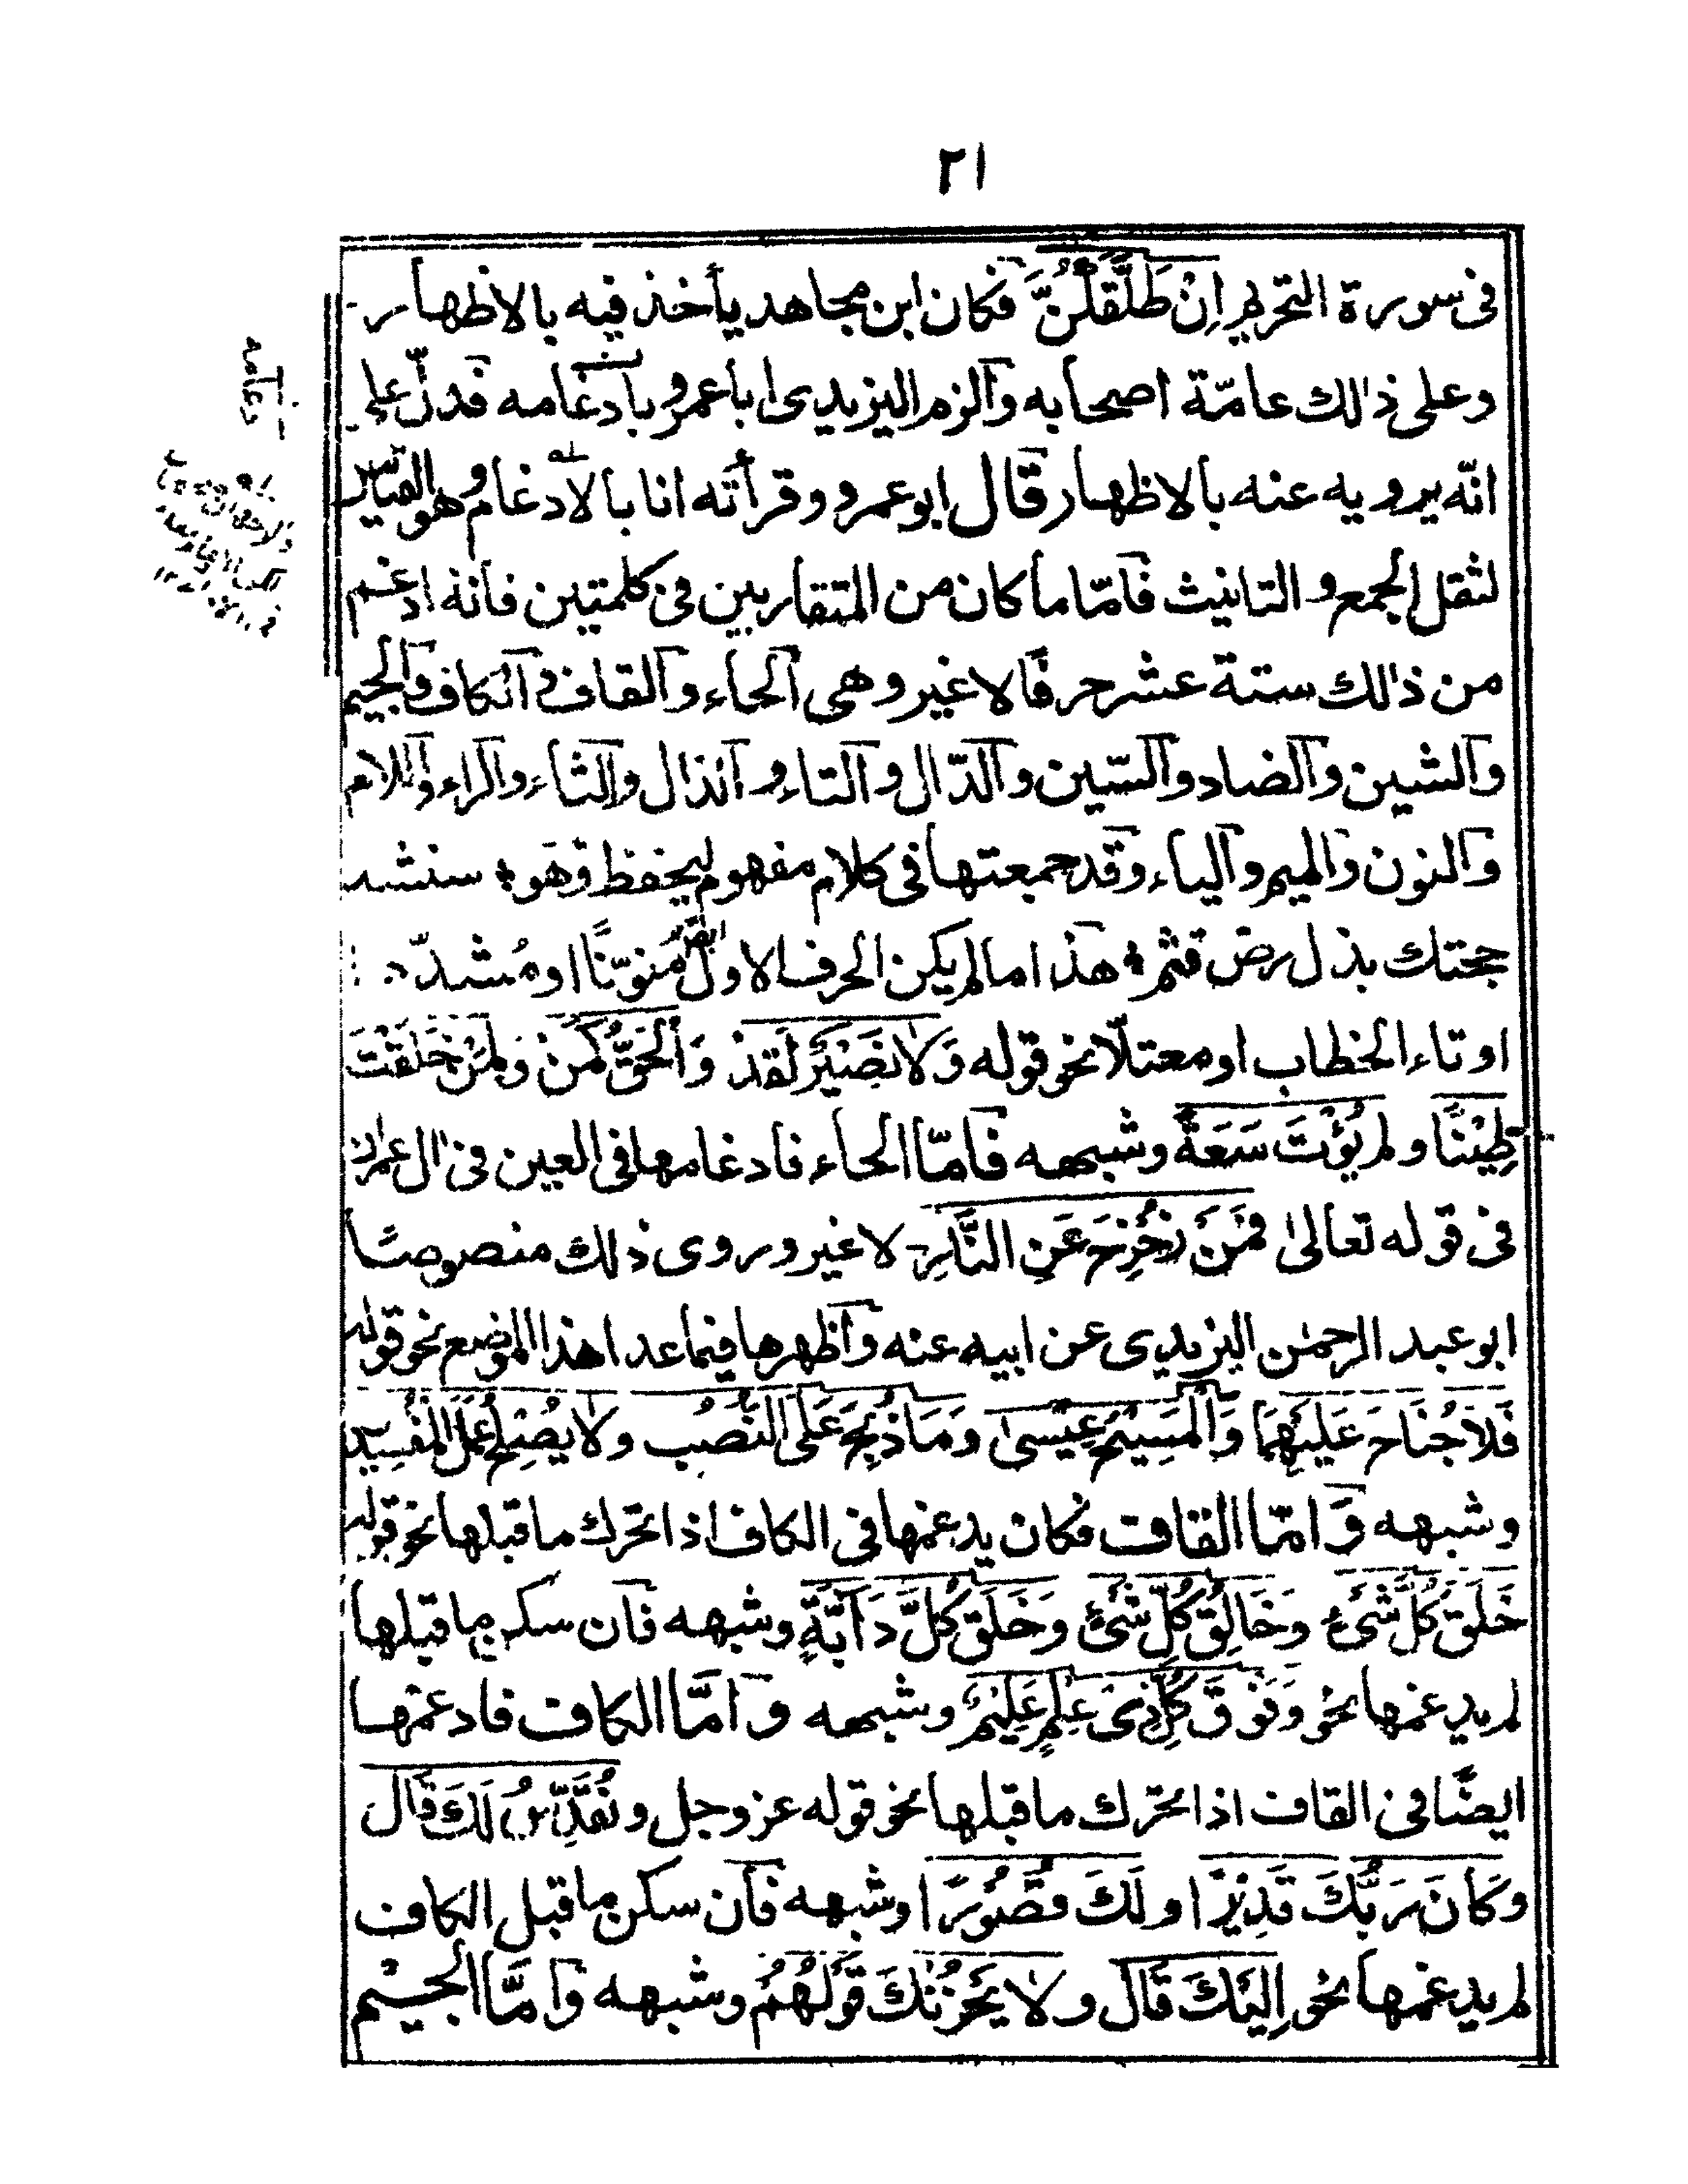 ٢١
فى سورة التحريم اِنْ طَلَّقَكُنَّ فكان ابن مجاهد يأخذ فيه بالاظهار
وعلى ذالك عامّة اصحابه والزم اليزيدى ابا عمرو بادغامه فدلّ على
انّه يرويه عنه بالاظهار قال ابو عمرو وقرأته انا بالادغام وهو القياس
لثقل الجمع و التانيث فامّا ما كان من المتقاربين فى كلمتين فانه ادغم
من ذالك ستة عشر حرفا لا غير وهى الحاء والقاف و الكاف والجيم
والشين والضاد والسّين والدّال والتاء و الذال والثاء والراء واللام
والنون والميم والباء وقد جمعتها فى كلام مفهوم ليحفظ وهو سنشد
حجتك بذل رض قثم هذا ما لم يكن الحرف الاول منوّنًا او مُشدّد
او تاء الخطاب او معتلّا نحو قوله وَلَا نَصِيْرٍ لَقَدْ وَالْحَقُّ كَمَنْ وَلِمَنْ خَلَقْتَ
طِيْنًا و لم يُؤْتَ سَعَةً وشبهه فامّا الحاء فادغامها فى العين فى اٰل عمران
فى قوله تعالىٰ فَمَنْ زُحْزِحَ عَنِ النَّارِ لا غير وروى ذلك منصوصًا
ابو عبد الرحمٰن اليزيدى عن ابيه عنه واظهرها فيما عدا هذا الموضع نحو قوله
فَلَا جُنَاحَ عَلَيْهِمَا وَالْمَسِيْحُ عِيْسٰى وَمَا ذُبِحَ عَلَى النُّصُبِ ولَا يُصْلِحُ عَمَلَ الْمُفْسِدِ
وشبهه وَ امّا القاف فكان يدغمها فى الكاف اذا تحرك ما قبلها نحو قوله
خَلَقَ كُلَّ شَىْءٍ وخَالِقُ كُلِّ شَىْءٍ وَخَلَقَ كُلَّ دَابَّةٍ وشبهه فان سكن ما قبلها
لم يدغمها نحو وَفَوْقَ كُلِّ ذِىْ عِلْمٍ عَلِيْمٌ وشبهه وَ امَّا الكاف فادغمها
ايضًا فى القاف اذا تحرّك ما قبلها نحو قوله عز وجل ونُقَدِّسُ لَكَ قَالَ
وكَانَ رَبُّكَ قَدِيْرًا و لَكَ قُصُوْرًا وشبهه فان سكن ما قبل الكاف
لم يدغمها نحو اِلَيْكَ قَالَ و لَا يَحْزُنْكَ قَوْلُهُمْ وشبهه وَ امَّا الجيم